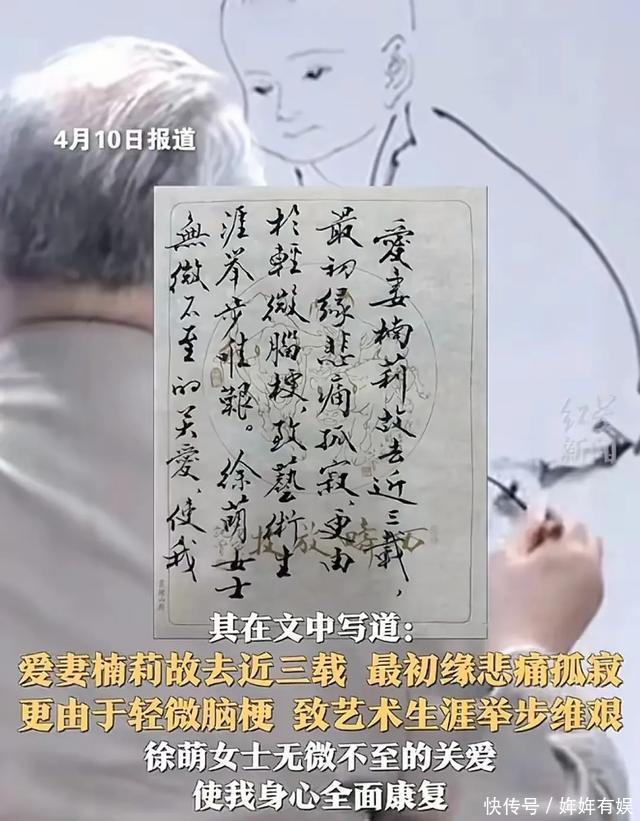 4月10日报道
愛妻楠莉故去近三載，
最初緣悲痛孤寂，更由
於輕微腦梗，致藝術生
涯举步惟艱。徐萌女士
無微不至的关愛，使我
红星
新闻
其在文中写道：
爱妻楠莉故去近三载 最初缘悲痛孤寂
更由于轻微脑梗 致艺术生涯举步维艰
徐萌女士无微不至的关爱
使我身心全面康复
快传号/姩姩有娱